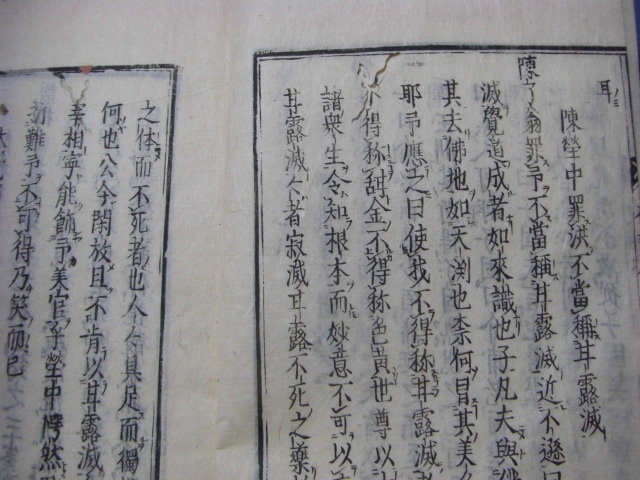 耳
陳瑩中罪洪不當稱甘露滅
陳了翁罪予不當稱甘露滅近不遜曰
滅覺道成者如來識也子凡夫與佛
其去佛地如天淵也柰何冒其美
耶予應之曰使我不得稱甘露滅
不得称甜金不得称色黄也尊以
諸衆生令知根本而妙意不可以
甘露滅々者寂滅甘露不死之藥
之体而不死者也人々具足而獨
何也公今閑放且不肯以甘露滅
宰相寧能飾予美官乎瑩中愕然
折難予不可得乃笑而已